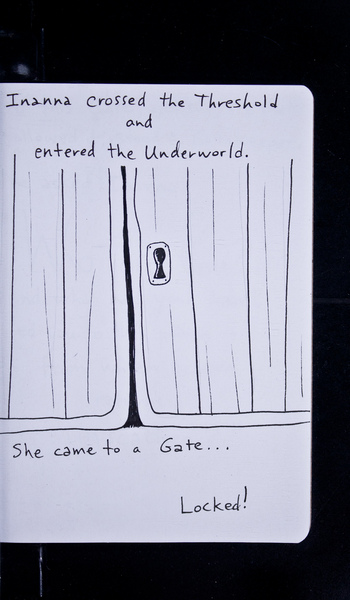 Inanna crossed the Threshold
and
entered the Underworld.
She came to a Gate...
Locked!